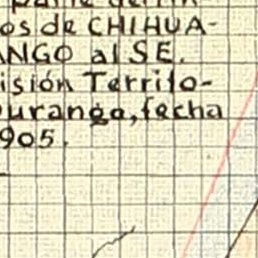 os de CHIHUA-
ANGO al SE.
isión Territo-
Durango, fecha
905.